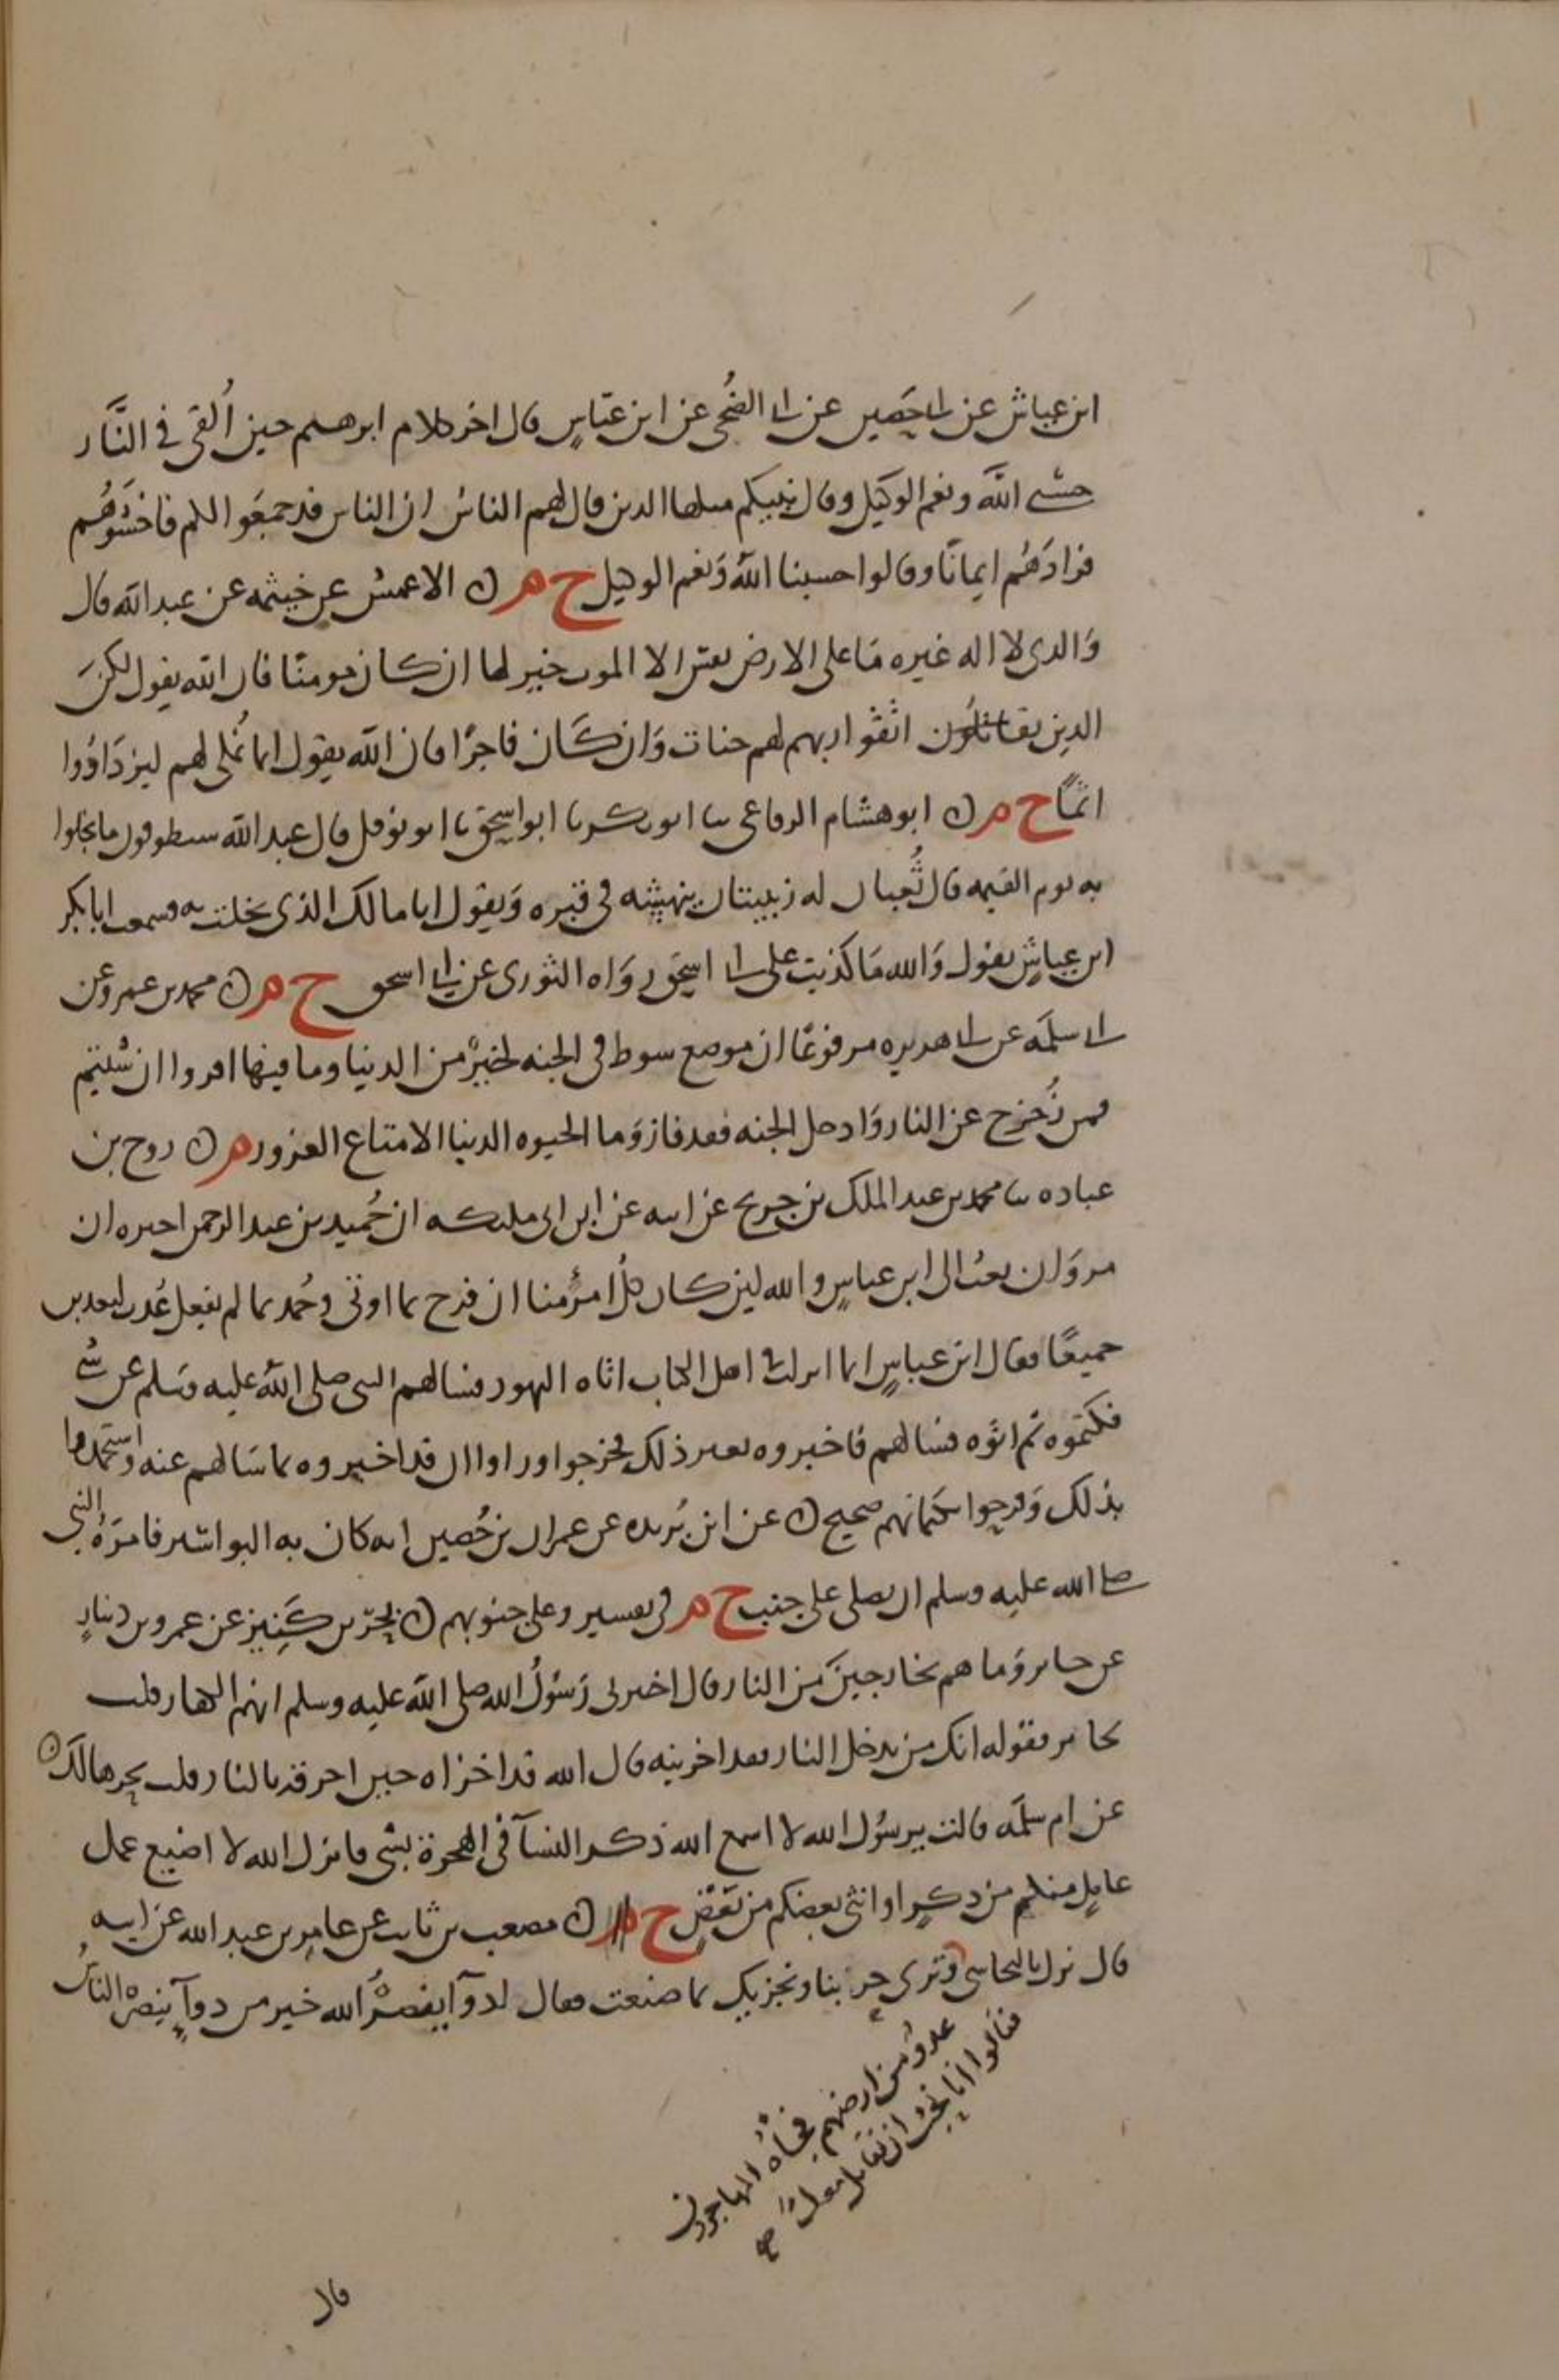 ابن عياش عن ابي حصين عن ابي الضحى عن ابن عباس قال اخر كلام ابرهيم حين اُلقي في النَّار
حسبي الله ونعم الوكيل وقال نبيكم مثلها الذين قال لهم الناسُ ان الناس قد جمَعُوا لكم فاخشَوهُم
فزادَهُم ايمانًا وقالوا حسبنا اللهُ وَنعم الوكيل خ م ن الاعمش عن خيثمه عن عبد الله قال
وَالذي لا اله غيره مَا على الارض نفس الا الموت خير لها ان كان مومنًا فان الله يقول لكن
الذين اتَّقَوا ربهم لهم جنات وَان كَان فاجرًا فان الله يقول انما نُملي لهم ليزدَادُوا
اثمًا خ م ن ابو هشام الرفاعي ثنا ابو بكر نا ابو اسحق نا ابو نوفل قال عبد الله سيطوقون ما بخلوا
به يوم القيمه قال ثُعبان له زبيبتان ينهشه في قبره وَيقول انا مالك الذي بخلت به وسمعت ابا بكر
ابن عياش يقول وَالله مَا كذبت على ابي اسحق روَاه الثوري عن ابي اسحق خ م ن محمد بن عمرو عن
ابي سلمَه عن ابي هريره مرفوعًا ان موضع سوط في الجنه لخيرٌ من الدنيا وما فيها اقروا ان شئتم
فمن زُحزح عن النار وَادخل الجنه فقد فاز وَما الحيوه الدنيا الا متاع الغرور م ن روح بن
عباده ثنا محمد بن عبد الملك بن جريج عن ابيه عن ابن ابي مليكه ان حُميد بن عبد الرحمن اخبره ان
مروَان بعث الى ابن عباسٍ والله لين كان كلُّ امرئ منا ان فرح بما اوتي وحُمد بما لم يفعل عُذب لنعذبن
جميعًا فقال ابن عباسٍ انما انزلت في اهل الكتاب اتاه اليهود فسالهم النبي صلى اللهُ عليه وَسلم عن شي
فكتموه ثم اتوه فسالهم فاخبروه بغير ذلك فخرجوا وراوا ان قد اخبروه بما سَالهم عنه واستحمدوا
بذلك وَفرحوا بكتمانهم صحيح ن عن ابن بُريده عن عمران بن حُصين انه كان به البواسير فامرَهُ النبي
صلى الله عليه وسلم ان يصلي على جنب خ م في تفسير وعلى جنوبهم ن بحر بن كَنِيز عن عمرو بن دينارٍ
عن جابر وَما هم بخارجينَ من النار قال اخبرني رَسُولُ الله صلى الله عليه وسلم انهم الكفار قلت
لجابر فقوله انك من تدخل النار فقد اخزيته قال الله قد اخزاه حين احرقه بالنار قلت بحر هالك ن
عن ام سلمَه قالت يرسُول الله لا اسمع الله ذكر النسآ في الهجرة بشي فانزل الله لا اضيع عمل
عاملٍ منكم من ذكرٍ او انثى بعضكم من بَعضٍ خ م ن مصعب بن ثابت عن عامر بن عبد الله عن ابيه
قال نزل بالنجاشي عدوٌّ من ارضهم فجاَه المهاجرون
فقالوا انا نحبُّ ان نقاتل معك صح
وترى جرءتنا ونجزيك بما صنعت فقال لدوآ بنصرُ الله خير من دوآٍ بنصرِ الناس
قال